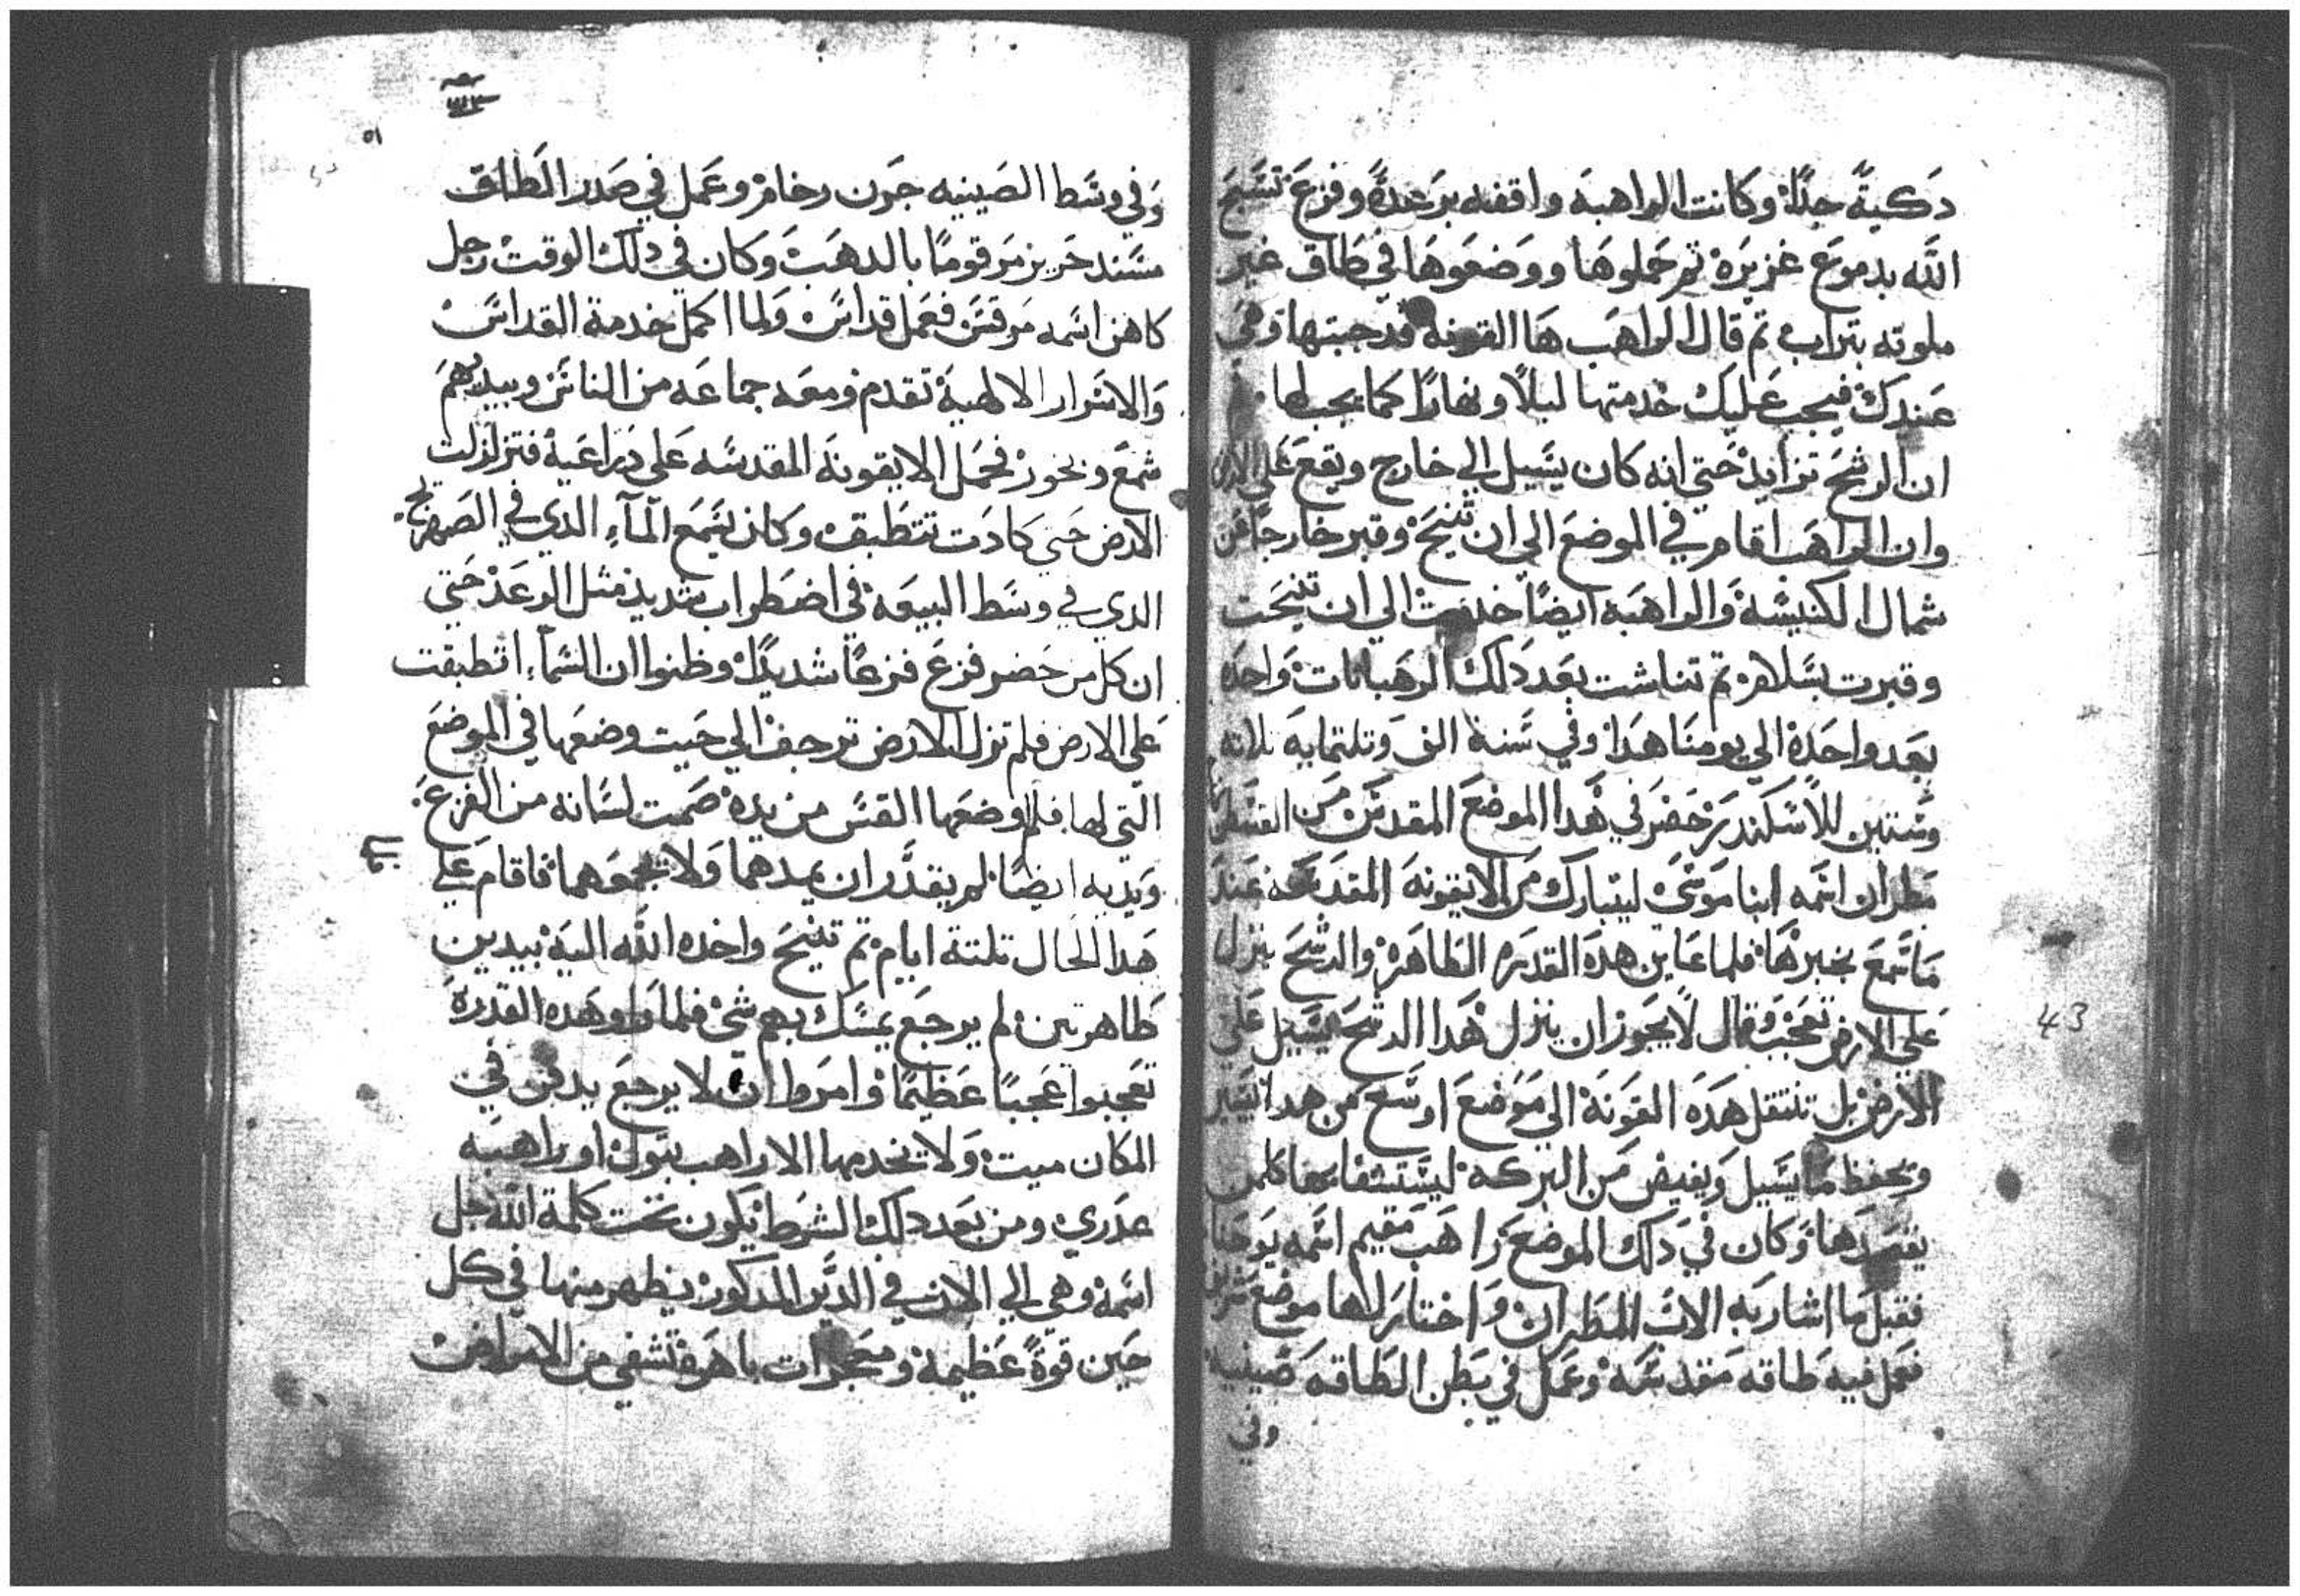 دكيةً جدًا وكانت الراهبه واقفه برعدةً وفزع تسبح
الله بدموع غزيره تم حملوها ووضعوها في طاق غير
ملوته بتراب تم قال الراهب ها القونه قد جبتها وهي
عندك فيجب عليك خدمتها ليلًا ونهارًا كما يجب لها
ان الرشح تزايد حتي انه كان يسيل الي خارج ويقع علي الارض
وان الراهب اقام في الموضع الي ان تنيح وقبر خارجًا عن
شمال الكنيسة والراهبه ايضًا خدمت الي ان تنيحت
وقبرت بسلام تم تناشت بعد دلك الرهبانات واحده
بعد واحدة الي يومنا هدا وفي سنة الف وتلتمايه تلاته
وستين للاسكندر حضر في هدا الموضع المقدس من القسطنطينية
مطران اسمه انبا موسى ليتبارك من الايقونه المقدسه عند
ما سمع بخبرها فلما عاين هده القدره الطاهرة والرشح ينزل
علي الارض تعجب وقال لا يجوز ان ينزل هدا الرشح يسيل علي
الارض بل تنتقل هده القونة الي موضع اوسع من هدا
وتحفظ ما يسيل ويفيض من البركه ليستشفا بها كلمن
يقصدها وكان في دلك الموضع راهب مقيم اسمه يوحنا
فقبل ما اشار به الاب المطران واختار لها موضع
فعمل فيه طاقه مقدسه وعمل في بطن الطاقه صينية
وفي
٥١
وفي وسط الصينيه جرن رخام وعمل في صدر الطاق
مسند حرير مرقومًا بالدهب وكان في دلك الوقت رجل
كاهن اسمه مرقس فعمل قداس ولما اكمل خدمة القداس
والاسرار الالهية تقدم ومعه جماعه من الناس وبيديهم
شمع وبخور فحمل الايقونه المقدسه على دراعية فتزلزلت
الارض حتي كادت تتطبق وكان يسمع المآء الدي في الصهريج
الدي في وسط البيعة في اضطراب شديد مثل الرعد حتي
ان كل من حضر فزع فزعًا شديدًا وظنوا ان السمآء انطبقت
على الارض فلم تزل الارض ترجف الي حيت وضعها في الموضع
التي لها فلما وضعها القس من يده صمت لسانه من الفزع
ويديه ايضًا لم يقدر ان يمدهما ولا يجمعهما فاقام علي
هدا الحال تلتة ايام تم تنيح واخده الله الية بيدين
طاهرتين لم يرجع يمسك بهم شي فلما راو هده القدرة
تعجبوا عجبًا عظيمًا وامروا ان لا يرجع يدفن في
المكان ميت ولا يخدمها الا راهب بتول او راهبه
عدري ومن بعد دلك الشرط يكون تحت كلمة الله جل
اسمة وهي الي الان في الدير المدكور يظهر منها في كل
حين قوةً عظيمة ومعجزات باهرة تشفي من الامراض
43